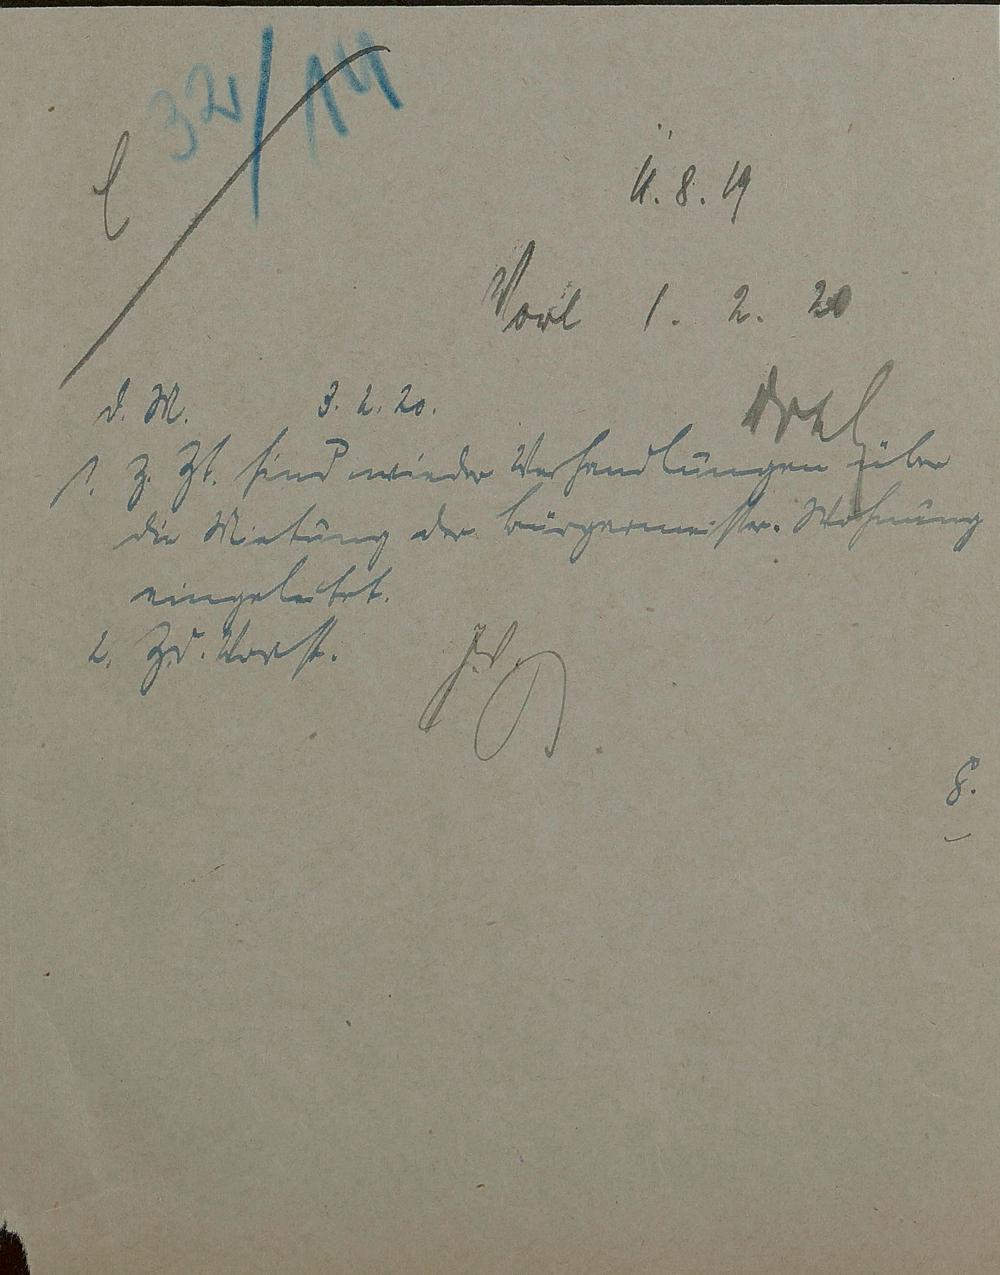 32/14
E
11.8.19
Vorl 1. 2. 20
d. M. 3. 2. 20.
1. Z. Zt. sind wieder Verhandlungen über
die Mietung der bürgermeistr. Wohnung
eingeleitet.
2. Zd. Vorst.
J.V.